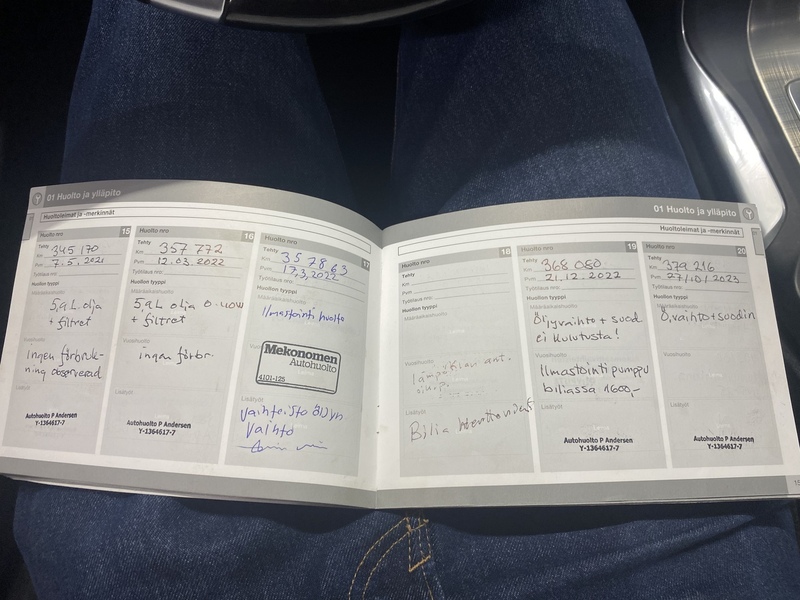 01 Huolto ja ylläpito
Huoltoleimat ja -merkinnät
Huolto nro 15
Tehty
Km 345 170
Pvm 7.5.2021
Työtilaus nro:
Huollon tyyppi
Määräaikaishuolto
5,9 L olja
+ filtret
Vuosihuolto
ingen förbruk-
ning observerad
Lisätyöt
Autohuolto P Andersen
Y-1364617-7
Huolto nro 16
Tehty
Km 357 772
Pvm 12.03.2022
Työtilaus nro:
Huollon tyyppi
Määräaikaishuolto
5,9 L olja 0-40W
+ filtret
Vuosihuolto
ingen förbr.
Lisätyöt
Autohuolto P Andersen
Y-1364617-7
Huolto nro 17
Tehty
Km 357863
Pvm 17.3.2022
Työtilaus nro:
Huollon tyyppi
Määräaikaishuolto
Ilmastointi huolto
Vuosihuolto
Mekonomen
Autohuolto
4101-125
Lisätyöt
Vaihteisto öljyn
Vaihto
01 Huolto ja ylläpito
Huoltoleimat ja -merkinnät
Huolto nro 18
Tehty
Km
Pvm
Työtilaus nro:
Huollon tyyppi
Määräaikaishuolto
Vuosihuolto
lämpötilan ant.
Lisätyöt
Bilia
Huolto nro 19
Tehty
Km 368 080
Pvm 21.12.2022
Työtilaus nro:
Huollon tyyppi
Määräaikaishuolto
Öljyvaihto + suod
ei kulutusta!
Vuosihuolto
Ilmastointipumppu
biliassa 1600,-
Lisätyöt
Autohuolto P Andersen
Y-1364617-7
Huolto nro 20
Tehty
Km 379 216
Pvm 27/10/2023
Työtilaus nro:
Huollon tyyppi
Määräaikaishuolto
Ö.vaihto+suodin
Vuosihuolto
Lisätyöt
Autohuolto P Andersen
Y-1364617-7